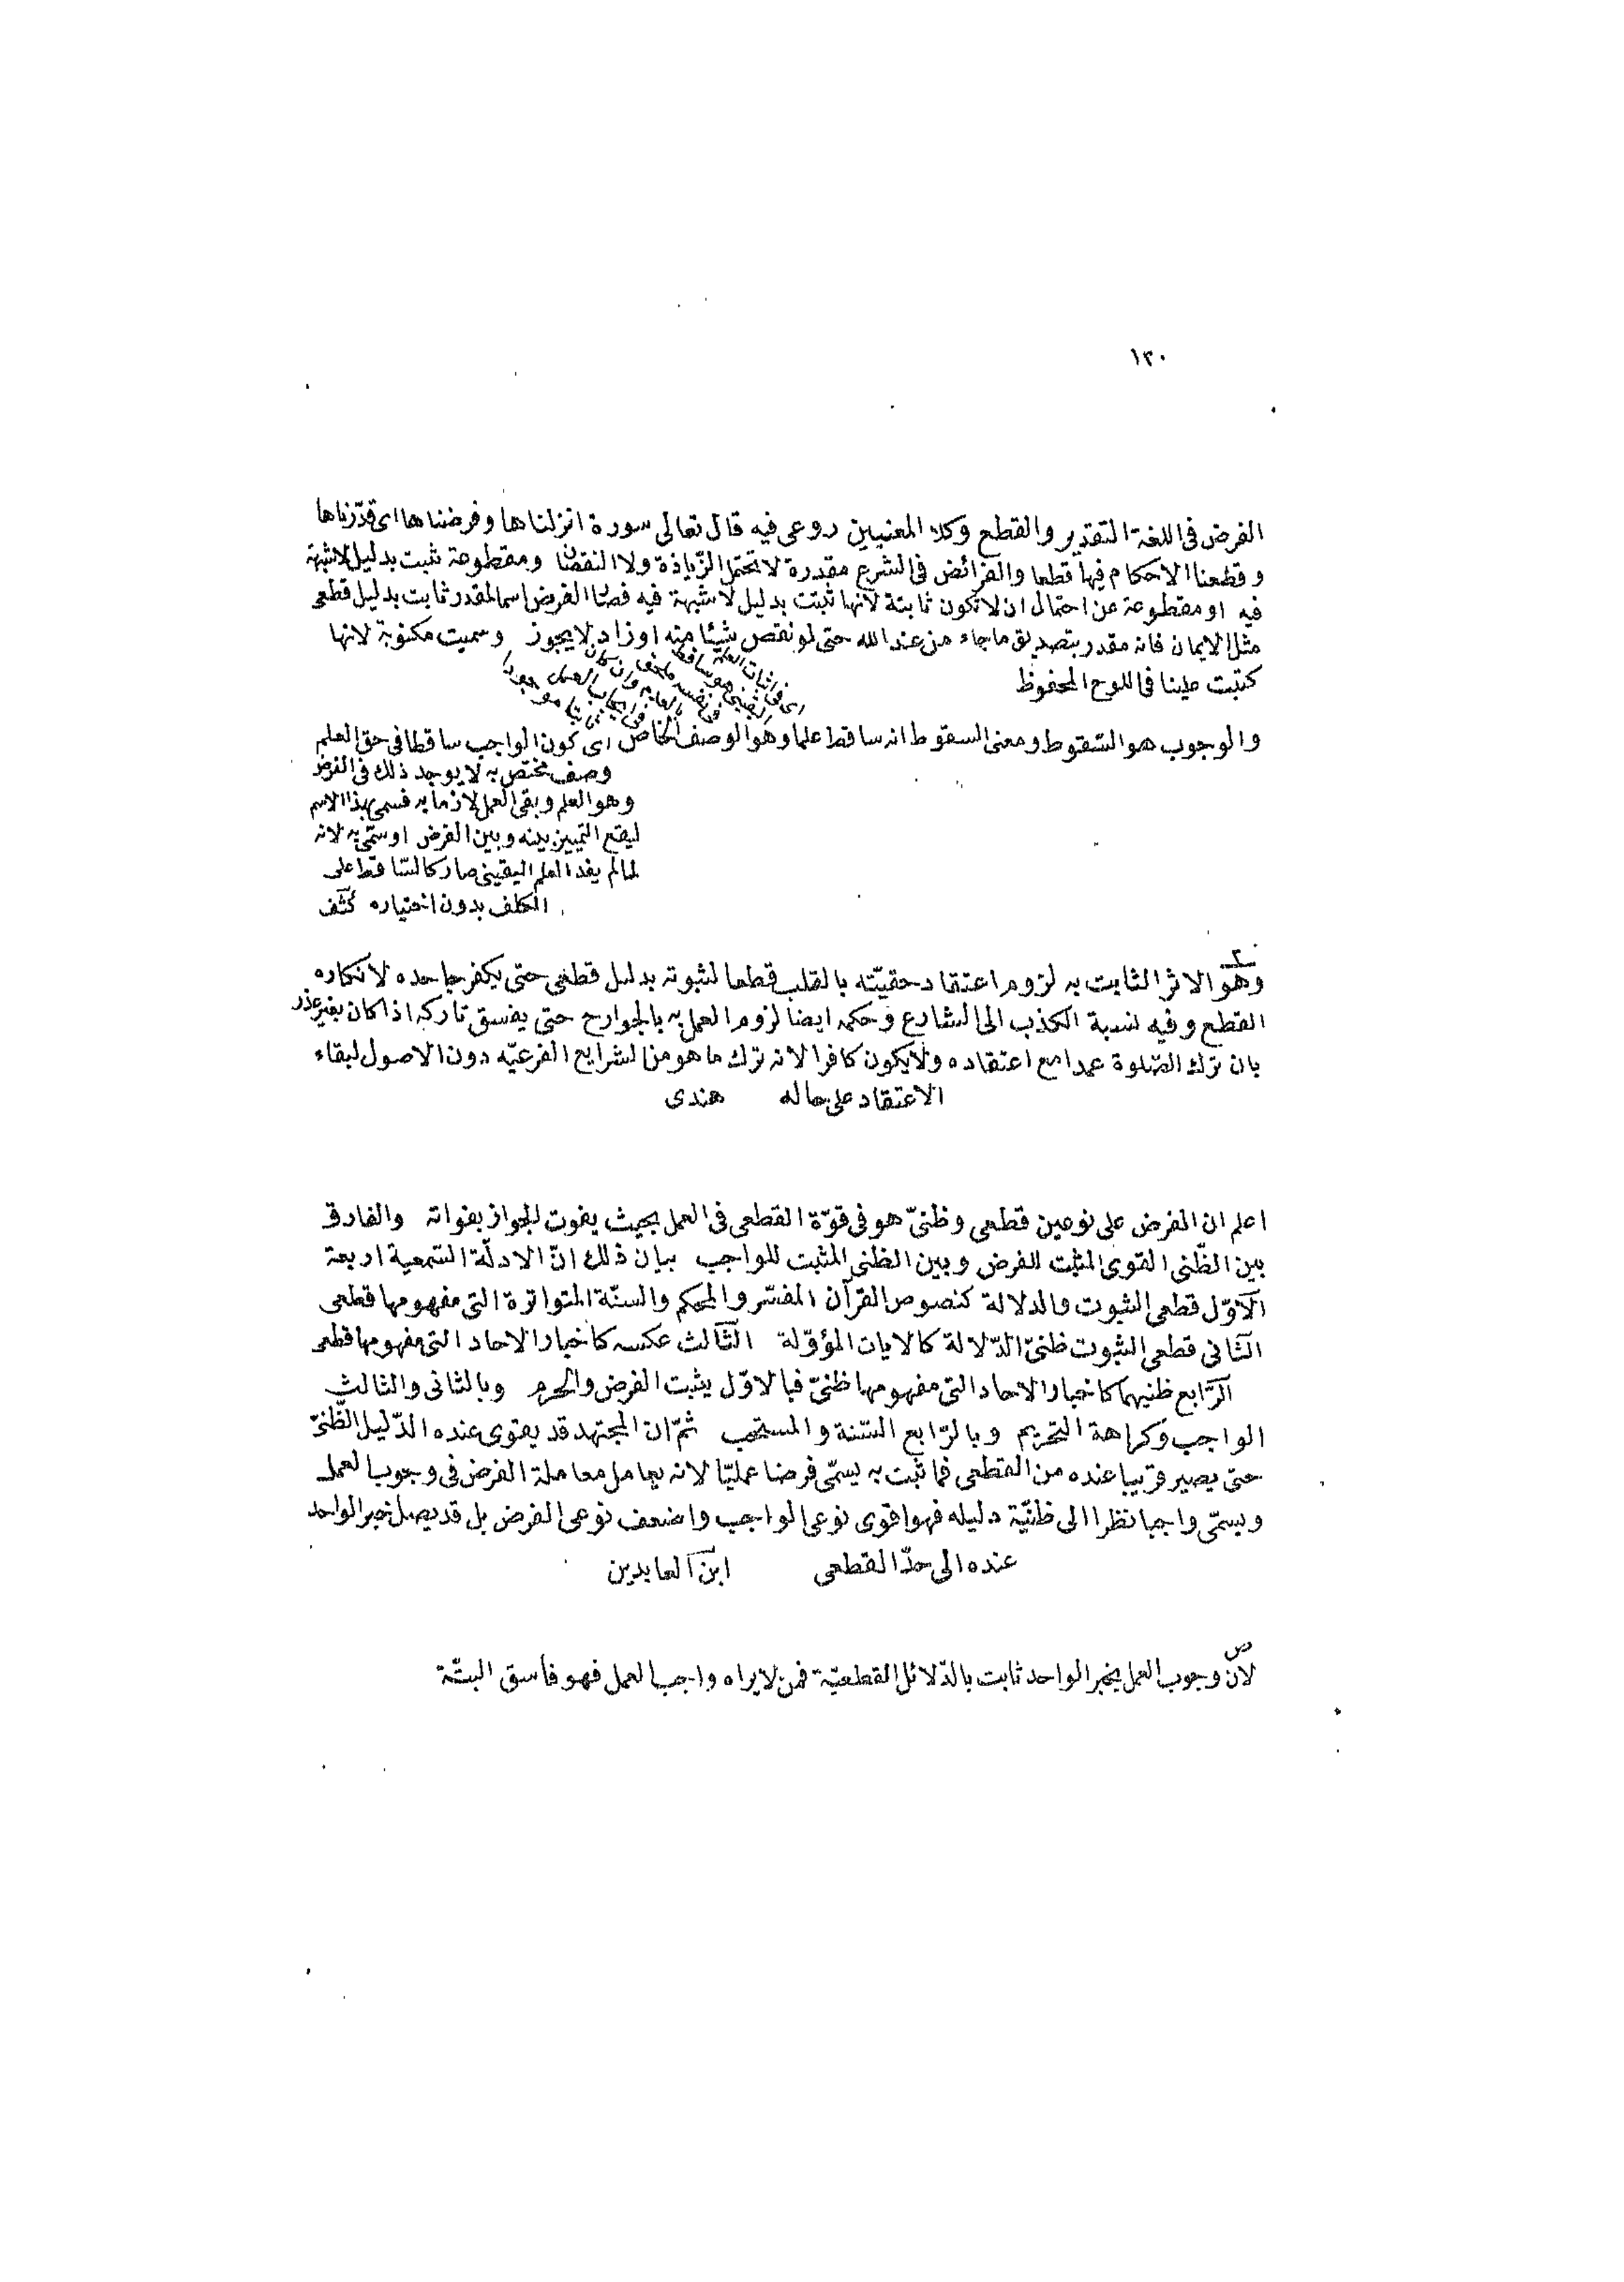 ١٣٠
الفرض فى اللغة التقدير والقطع وكلا المعنيين روعى فيه قال تعالى سورة انزلناها وفرضناها اى قدّرناها
وقطعنا الاحكام فيها قطعا والفرائض فى الشرع مقدرة لا تحتمل الزّيادة ولا النقصان ومقطوعة ثبت بدليل لا شبهة
فيه او مقطوعة عن احتمال ان لا تكون ثابتة لانها ثبتت بدليل لا شبهة فيه فصار الفرض اسما لمقدر ثابت بدليل قطعى
مثل الايمان فانه مقدر بتصديق ما جاء من عند الله حتى لو نقص شيئا منه او زاد لا يجوز وسميت مكتوبة لانها
كتبت علينا فى اللوح المحفوظ
اى فى اثبات العلم
اليقينى هو ساقط
فى نفسه ملحق
بالعدم وان كان
فى ايجاب العمل
ثابتا موجودا
والوجوب هو السّقوط ومعنى السقوط انه ساقط علما وهو الوصف الخاص اى كون الواجب ساقطا فى حق العلم
وصف مختصّ به لا يوجد ذلك فى الفرض
وهو العلم وبقى العمل لازما به فسمى بهذا الاسم
ليقع التمييز بينه وبين الفرض او سمّى به لانه
لما لم يفد العلم اليقينى صار كالسّاقط على
المكلف بدون اختياره كشف
وهو الاثر الثابت به لزوم اعتقاد حقيّته بالقلب قطعا لثبوته بدليل قطعى حتى يكفر جاحده لانكاره
القطع وفيه نسبة الكذب الى الشارع وحكمه ايضا لزوم العمل به بالجوارح حتى يفسق تاركه اذا كان بغير عذر
بان ترك الصّلوة عمدا مع اعتقاده ولا يكون كافرا لانه ترك ما هو من الشرايع الفرعيّه دون الاصول لبقاء
الاعتقاد على حاله هندى
اعلم ان الفرض على نوعين قطعى وظنىّ هو فى قوّة القطعى فى العمل بحيث يفوت الجواز بفواته والفارق
بين الظّنى القوى المثبت للفرض وبين الظنى المثبت للواجب بيان ذلك انّ الادلّة السّمعية اربعة
الاوّل قطعى الثبوت والدلالة كنصوص القرآن المفسّر والمحكم والسنّة المتواترة التى مفهومها قطعى
الثّانى قطعى الثبوت ظنىّ الدّلالة كالايات المؤوّلة الثّالث عكسه كاخبار الاحاد التى مفهومها قطعى
الرّابع ظنيهما كاخبار الاحاد التى مفهومها ظنىّ فبالاوّل يثبت الفرض والحرم وبالثانى والثالث
الواجب وكراهة التحريم وبالرّابع السّنة والمستحب ثمّ ان المجتهد قد يقوى عنده الدّليل الظّنىّ
حتى يصير قريبا عنده من القطعى فما ثبت به يسمّى فرضا عمليّا لانه يعامل معاملة الفرض فى وجوب العمل
ويسمّى واجبا نظرا الى ظنيّة دليله فهو اقوى نوعى الواجب واضعف نوعى الفرض بل قد يصل خبر الواحد
عنده الى حدّ القطعى ابن العابدين
ص
لانّ وجوب العمل بخبر الواحد ثابت بالدّلائل القطعيّة فمن لا يراه واجب العمل فهو فاسق البتّة